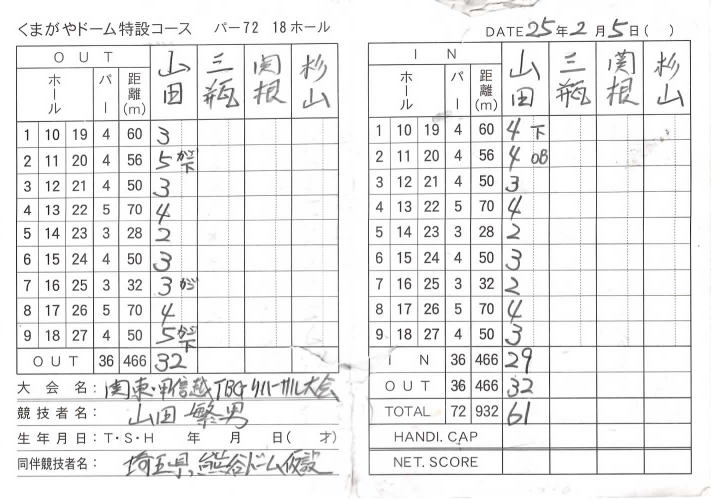 くまがやドーム特設コース パー72 18ホール
OUT
ホール パー 距離(m) 山田 三瓶 関根 杉山
1 10 19 4 60 3
2 11 20 4 56 5 がご下
3 12 21 4 50 3
4 13 22 5 70 4
5 14 23 3 28 2
6 15 24 4 50 3
7 16 25 3 32 3 がご
8 17 26 5 70 4
9 18 27 4 50 5 がご下
OUT 36 466 32
大会名:関東・甲信越TBGリハーサル大会
競技者名:山田繁男
生年月日:T・S・H 年 月 日( 才)
同伴競技者名:埼玉県熊谷ドーム仮設
DATE 25年2月5日( )
IN
ホール パー 距離(m) 山田 三瓶 関根 杉山
1 10 19 4 60 4 下
2 11 20 4 56 4 OB
3 12 21 4 50 3
4 13 22 5 70 4
5 14 23 3 28 2
6 15 24 4 50 3
7 16 25 3 32 2
8 17 26 5 70 4
9 18 27 4 50 3
IN 36 466 29
OUT 36 466 32
TOTAL 72 932 61
HANDI. CAP
NET. SCORE